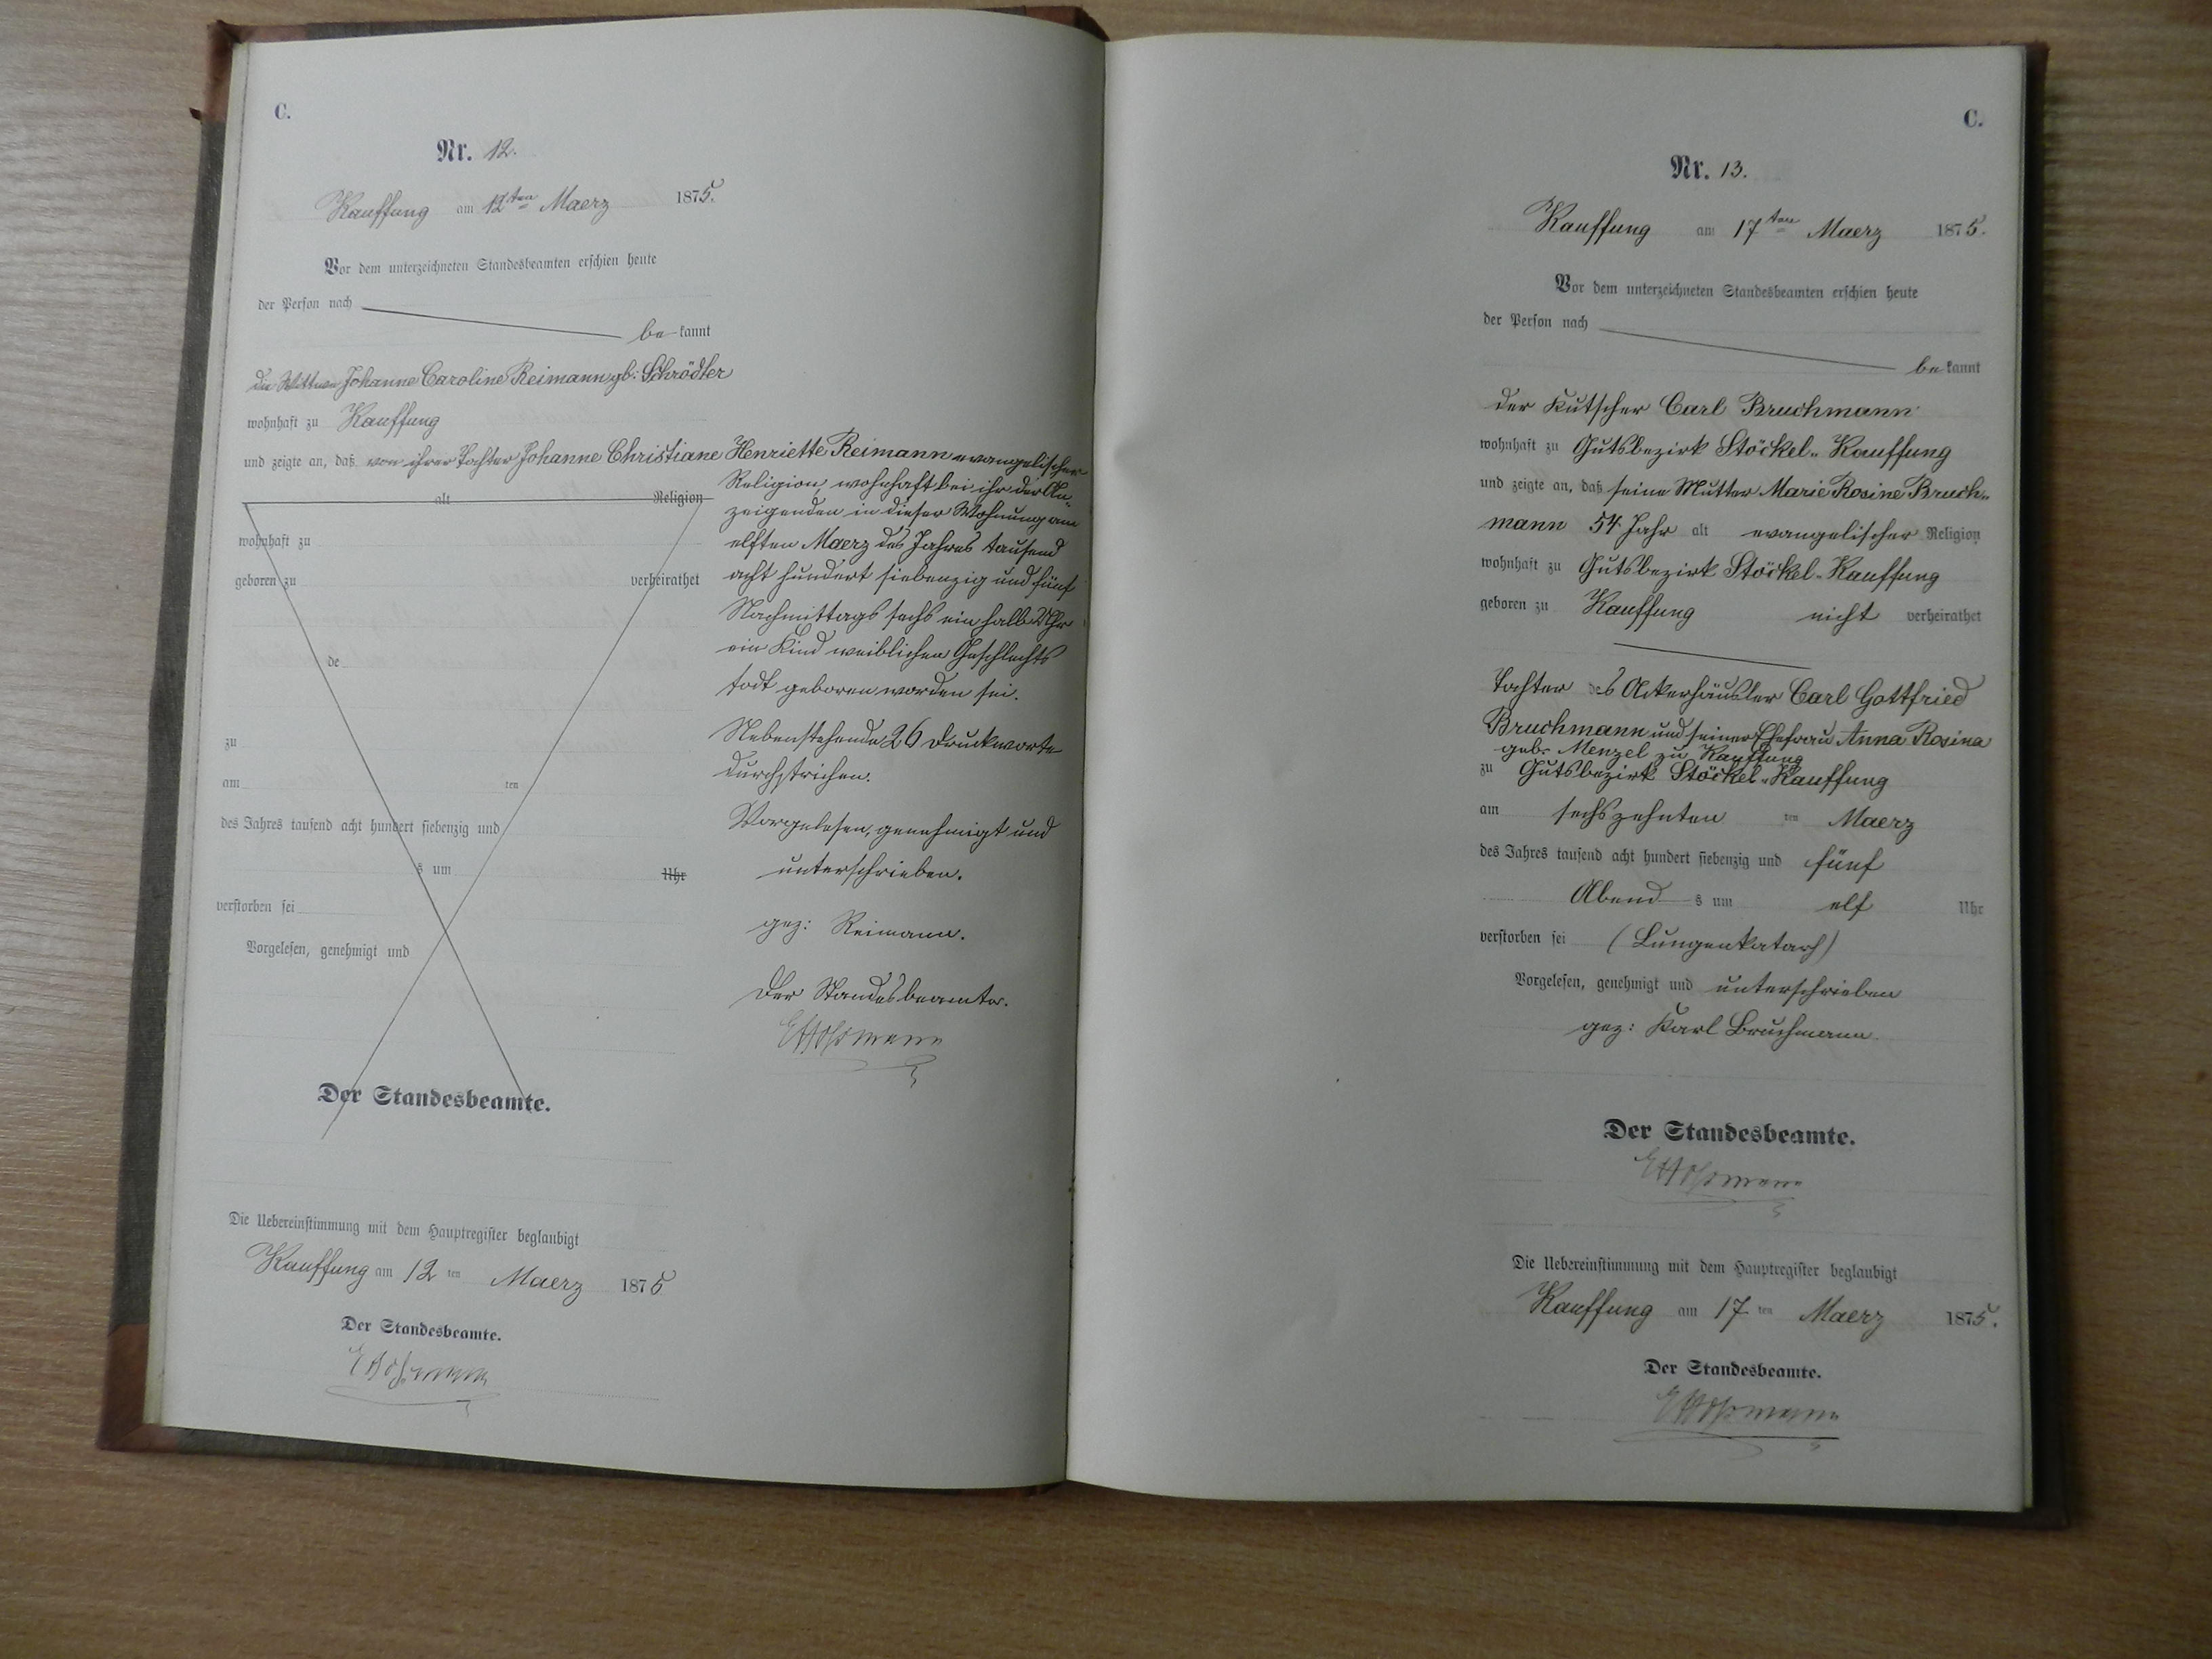 C.
Nr. 12.
Kauffung am 12ten Maerz 1875.
Vor dem unterzeichneten Standesbeamten erschien heute
der Person nach
be kannt
die Wittwe Johanne Caroline Reimann gb: Schrödter
wohnhaft zu Kauffung
und zeigte an, daß von ihrer Tochter Johanne Christiane Henriette Reimann evangelischer
alt Religion
Religion, wohnhaft bei ihr der An-
zeigenden in dieser Wohnung am
wohnhaft zu
elften Maerz des Jahres tausend
geboren zu verheirathet
acht hundert siebenzig und fünf
Nachmittags sechs ein halb Uhr
ein Kind weiblichen Geschlechts
de
todt geboren worden sei.
Nebenstehende 26 Druckworte
zu
durchstrichen.
am ten
des Jahres tausend acht hundert siebenzig und
Vorgelesen, genehmigt und
s um Uhr
unterschrieben.
verstorben sei
gez: Reimann.
Vorgelesen, genehmigt und
Der Standesbeamte.
Der Standesbeamte.
Die Uebereinstimmung mit dem Hauptregister beglaubigt
Kauffung am 12 ten Maerz 1875
Der Standesbeamte.
C.
Nr. 13.
Kauffung am 17ten Maerz 1875.
Vor dem unterzeichneten Standesbeamten erschien heute
der Person nach
be kannt
der Kutscher Carl Bruchmann
wohnhaft zu Gutsbezirk Stöckel-Kauffung
und zeigte an, daß seine Mutter Marie Rosine Bruch-
mann 54 Jahr alt evangelischer Religion
wohnhaft zu Gutsbezirk Stöckel-Kauffung
geboren zu Kauffung nicht verheirathet
Tochter des Ackerhäusler Carl Gottfried
Bruchmann und seiner Ehefrau Anna Rosina
geb. Menzel zu Kauffung
zu Gutsbezirk Stöckel-Kauffung
am sechszehnten ten Maerz
des Jahres tausend acht hundert siebenzig und fünf
Abend s um elf Uhr
verstorben sei (Lungenkatarh)
Vorgelesen, genehmigt und unterschrieben
gez: Karl Bruchmann
Der Standesbeamte.
Die Uebereinstimmung mit dem Hauptregister beglaubigt
Kauffung am 17 ten Maerz 1875.
Der Standesbeamte.